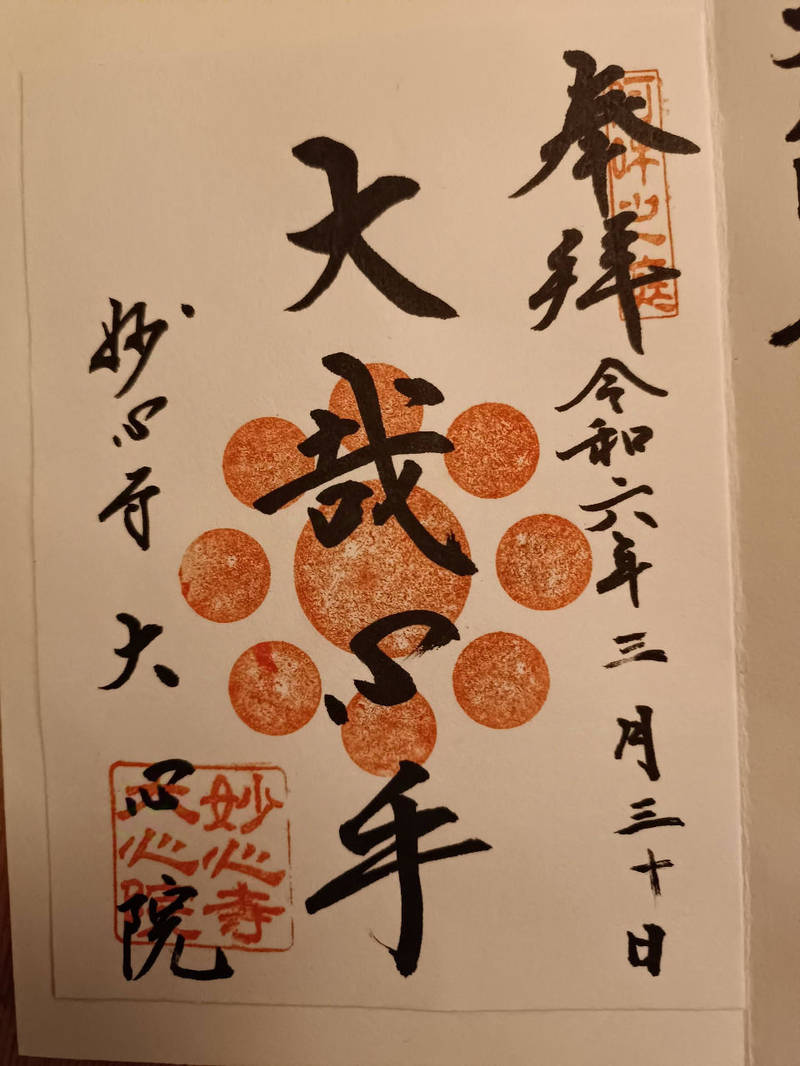 奉拝
阿吽之庭
令和六年三月三十日
大哉心乎
妙心寺大心院
妙心寺
大心院